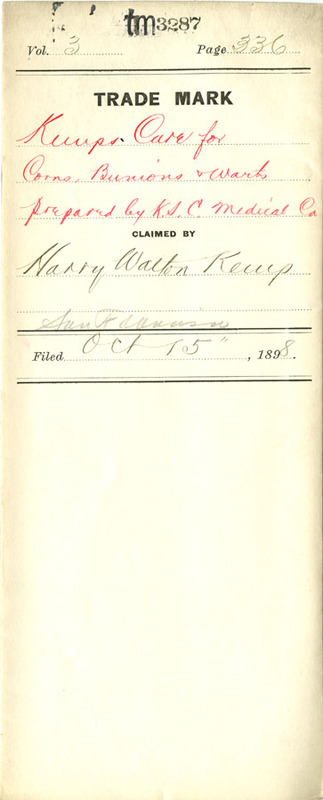 tm3287
Vol. 3 Page 336
TRADE MARK
Kemps Cure for
Corns, Bunions & Warts
prepared by K.S.C. Medical Co
CLAIMED BY
Harry Walton Kemp
San Francisco
Filed Oct 15" , 1898.